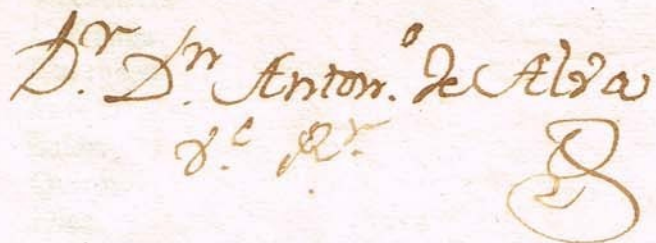 D.r D.n Anton.o de Alva
V.e R.r